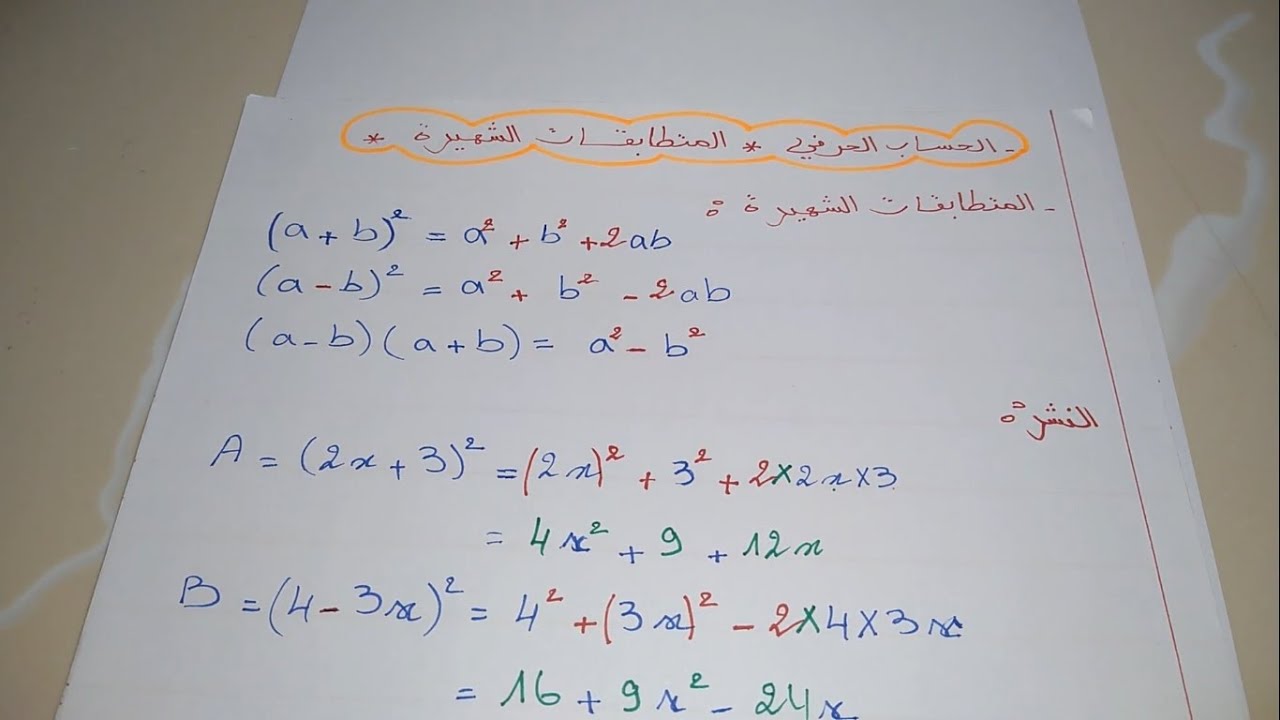 - الحساب الحرفي * المتطابقات الشهيرة *
- المتطابقات الشهيرة :
(a + b)² = a² + b² + 2ab
(a - b)² = a² + b² - 2ab
(a - b)(a + b) = a² - b²
النشر :
A = (2x + 3)² = (2x)² + 3² + 2×2x×3
= 4x² + 9 + 12x
B = (4 - 3x)² = 4² + (3x)² - 2×4×3x
= 16 + 9x² - 24x